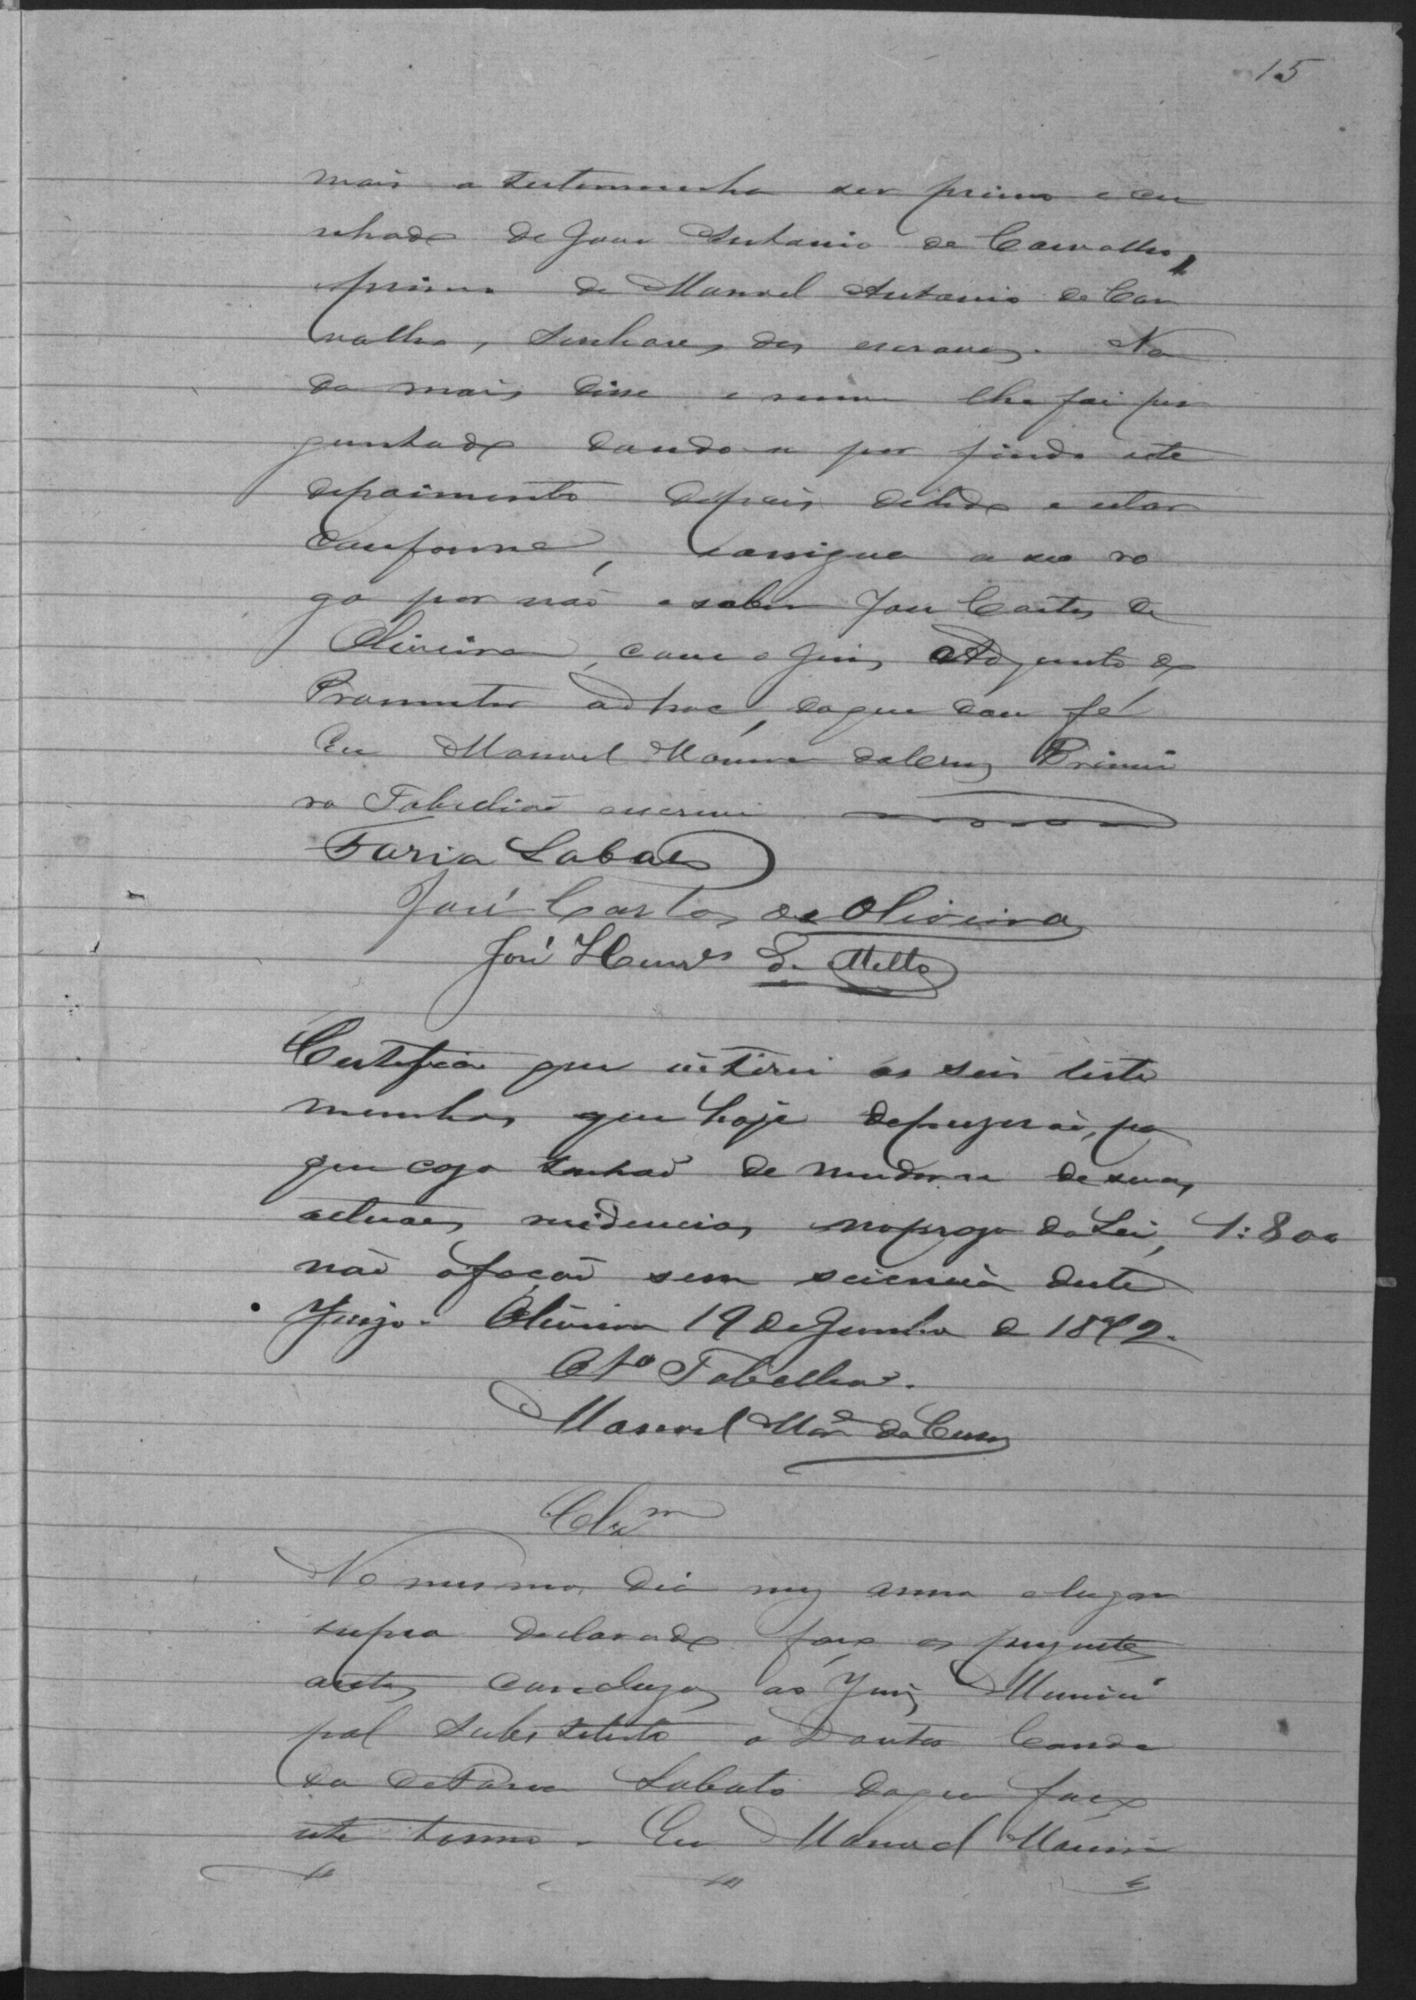 15
mais a testemunha ser primo e cu
nhado de José Antonio de Carvalho,
e primo de Manoel Antonio de Car
valho, senhores dos escravos. Na
da mais disse e nem lhe foi per
guntado dando-se por findo este
depoimento depois de lido e estar
conforme, assigna a seu ro
go por não o saber José Carlos de
Oliveira, com o Juiz, Adjunto do
Promotor adhoc, do que dou fé
Eu Manoel Moreira da Cruz Primei
ro Tabellião escrevi
Faria Lobato
José Carlos de Oliveira
José Henrs de Mello
Certifico que intimei as seis teste
munhas que hoje depuzerão, pa
que caso tenhão de mudar-se de suas
actuaes residencias no prazo da Lei, 1:800
não o fação sem sciencia deste
Juizo. Oliveira 19 de Junho de 1872.
O 1º Tabellião.
Manoel Mora da Cruz
Clsm
No mesmo dia mez anno e lugar
supra declarado faço os presentes
autos conclusos ao Juiz Munici
pal Substituto o Doutor
de Faria Lobato do que faço
este termo. Eu Manoel Moreira